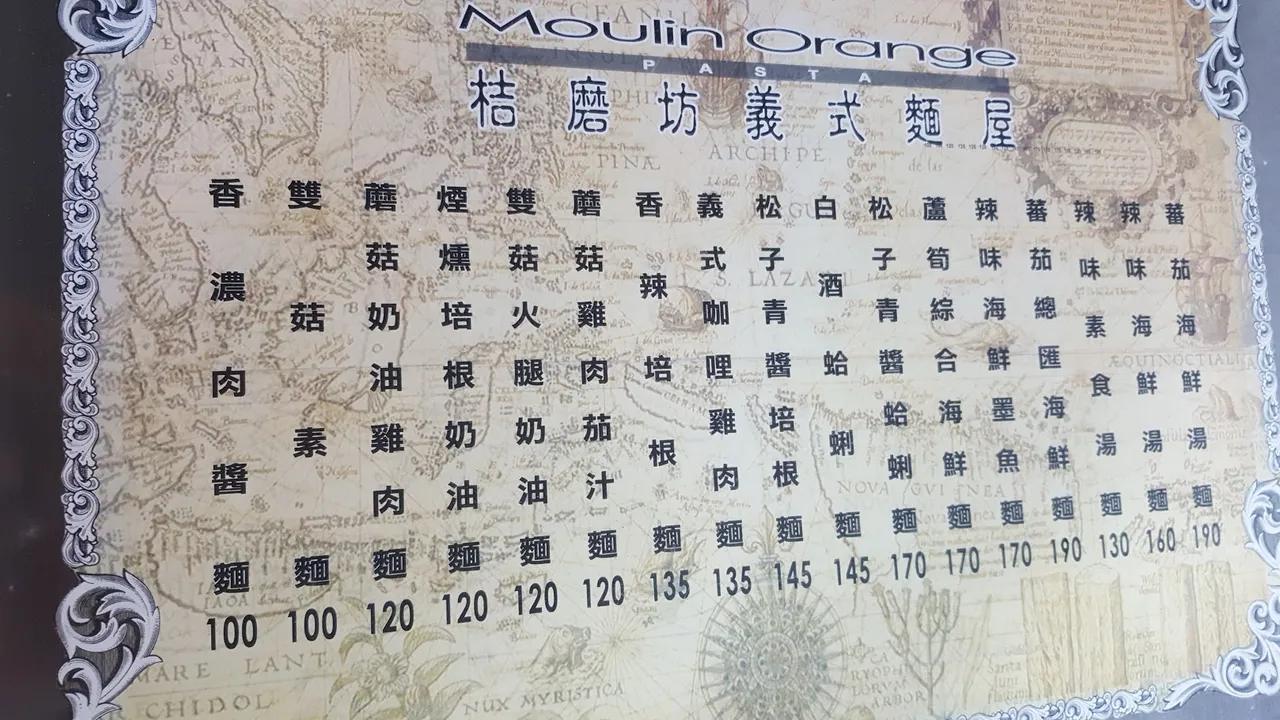 Moulin Orange
PASTA
桔磨坊義式麵屋
香濃肉醬麵 100
雙菇素麵 100
蘑菇奶油雞肉麵 120
煙燻培根奶油麵 120
雙菇火腿奶油麵 120
蘑菇雞肉茄汁麵 120
香辣培根麵 135
義式咖哩雞肉麵 135
松子青醬培根麵 145
白酒蛤蜊麵 145
松子青醬蛤蜊麵 170
蘆筍綜合海鮮麵 170
辣味海鮮墨魚麵 170
蕃茄總匯海鮮麵 190
辣味素食湯麵 130
辣味海鮮湯麵 160
蕃茄海鮮湯麵 190
PINÆ
ARCHIPE
S. LAZA
NOVA GUINEA
MARE LANT
CHIDOL
NUX MYRISTICA
ARBOR